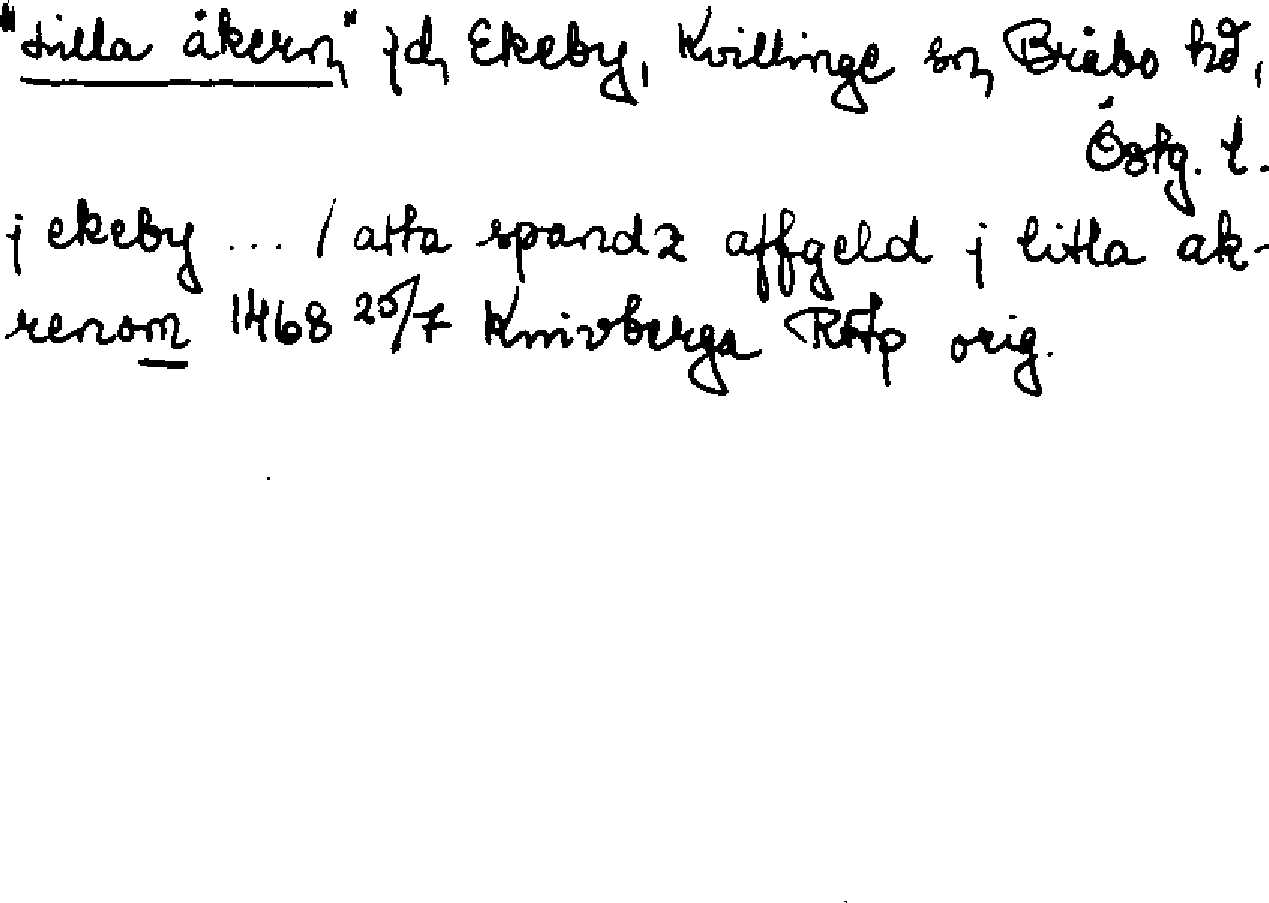 "Lilla åkern" jd, Ekeby, Kvillinge sn, Bråbo hd,
Östg. l.
j ekeby ... / atta spandz affgeld j litla ak-
renom 1468 25/7 Knivberga RAp orig.